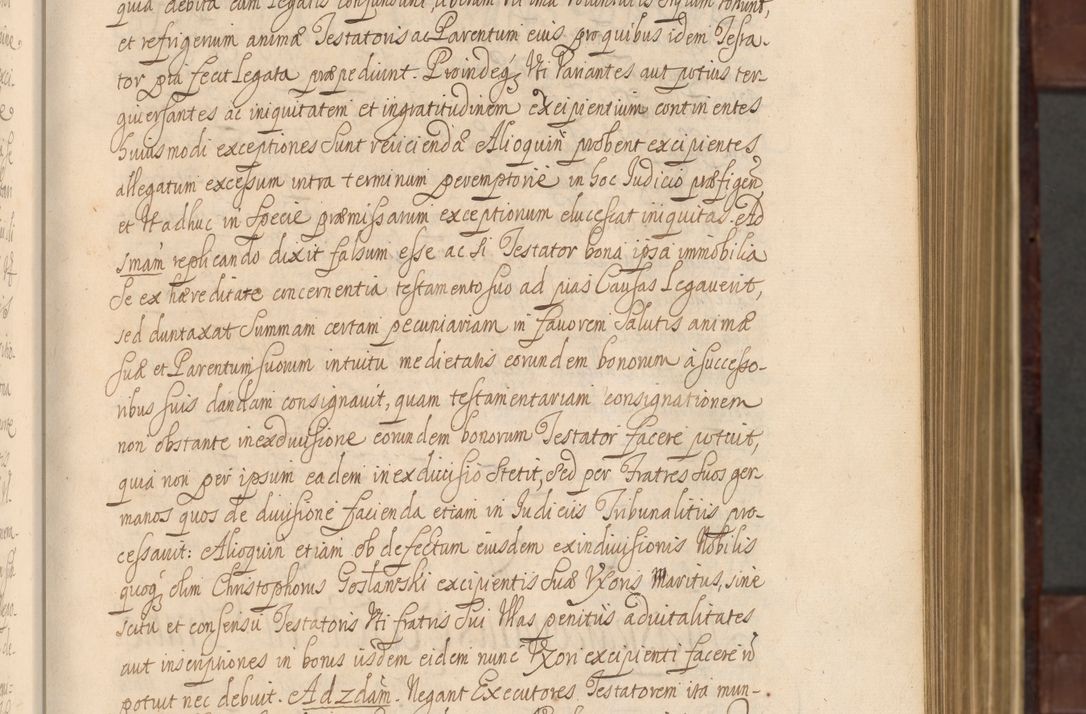 quia debita cum Legatis conjunduni, ultimam voluntatis
et refrigerium animæ Testatoris ac Parentum eius pro quibus idem Testa-
tor pia fecit Legata præpediunt. Proindeq3 Vti Variantes aut potius ter-
giuersantes ac iniquitatem et ingratitudinem excipientium continentes
huiusmodi exceptiones sunt reiiciendæ Alioquin probent excipientes
allegatum excessum intra terminum peremptorie in hoc Judicio præfigen:
et Vt adhuc in specie præmissarum exceptionum elucescat iniquitas. Ad
1mam replicando dixit falsum esse ac si Testator bona ipsa immobilia
se ex hæreditate concernentia testamento suo ad pias Causas Legauerit,
sed duntaxat Summam certam pecuniariam in fauorem Salutis animæ
suæ et Parentum suorum intuitu medietatis eorundem bonorum à successo-
ribus suis dandam consignauit, quam testamentariam consignationem
non obstante inexdiuisione eorundem bonorum Testator facere potuit,
quia non per ipsum eadem inexdiuisio stetit, sed per Fratres suos ger-
manos quos de diuisione facienda etiam in Judiciis Tribunalitiis pro-
cessauit: Alioquin etiam ob defectum eiusdem exindiuisionis Nobilis
quoq3 olim Christophorus Gosławski excipientis suæ Vxoris Maritus, sine
scitu et consensu Testatoris Vti fratris sui Vllas penitus aduitalitates
aut inscriptiones in bonis iisdem eidem nunc Vxori excipienti facere n
potuit nec debuit. Ad 2dam. Negant Executores Testatorem ita mun-